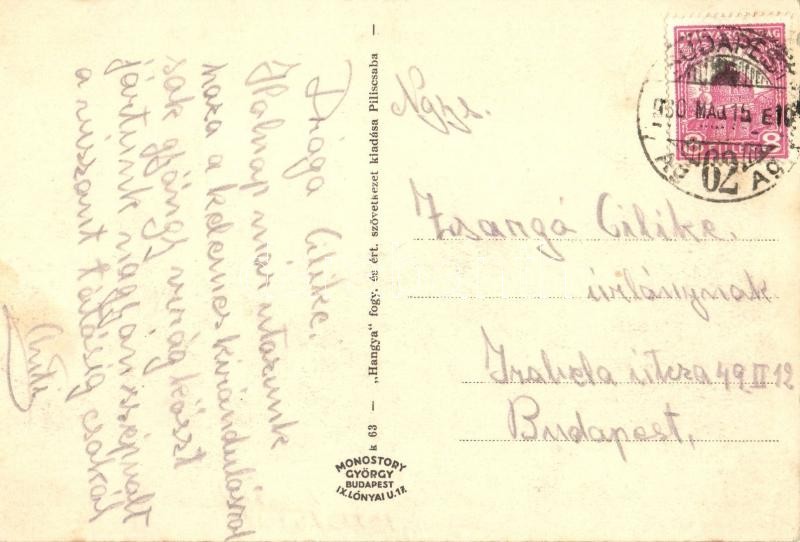 Drága Cilike,
Holnap már utazunk
haza a kelemes kirándulásról
sok gyöngy virág közt
jártunk nagyon szép volt
a viszont látásig csókol
Nagys.
Zsargó Cilike.
úrlánynak
Izabela útcza 49 II 12
Budapest,
k 63 — „Hangya" fogy. és ért. szövetkezet kiadása Piliscsaba —
MONOSTORY
GYÖRGY
BUDAPEST
IX. LÓNYAI U. 17.
BUDAPEST
930 MÁJ 15 E10